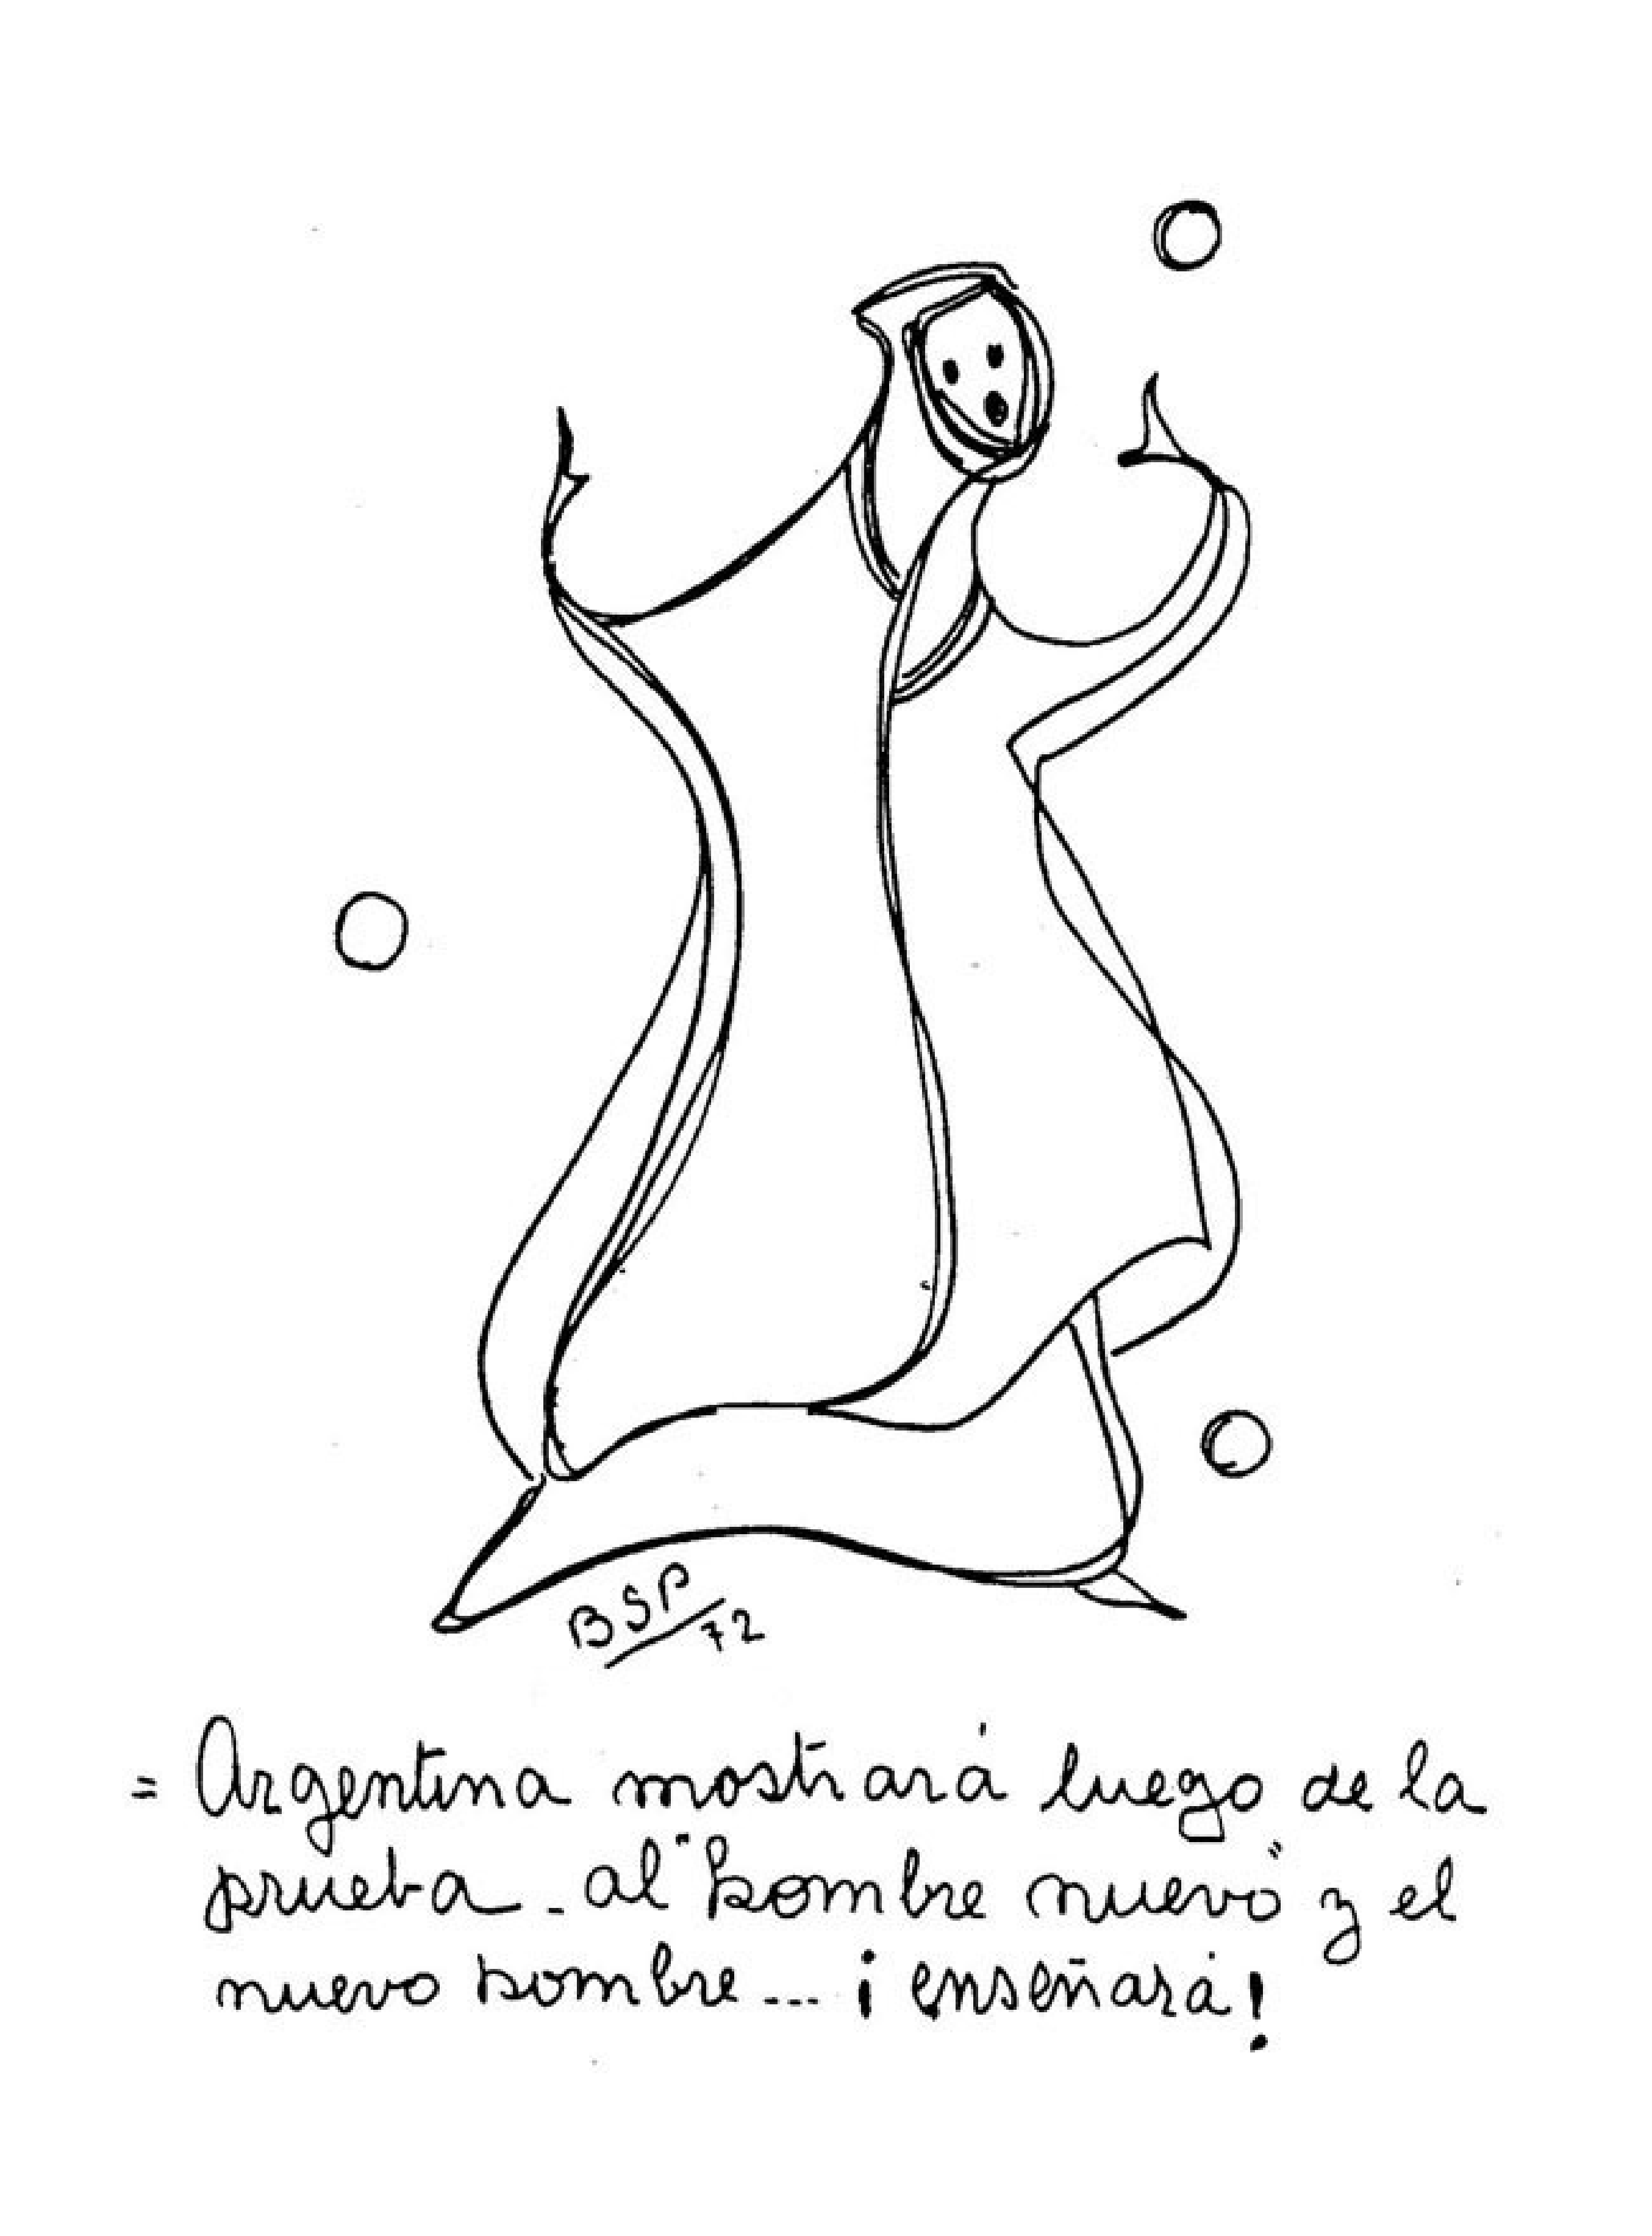 BSP
72
= Argentina mostrará luego de la
prueba - al "hombre nuevo" y el
nuevo hombre... ¡enseñará!